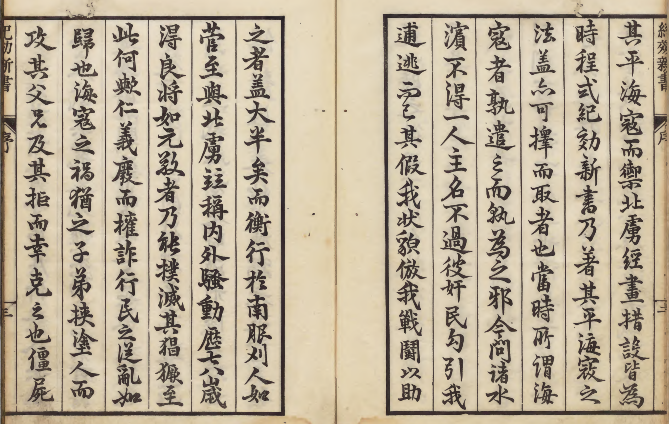 其平海寇而禦北虜經畫措設皆為
時程式紀効新書乃著其平海寇之
法盖亦可擇而取者也當時所謂海
寇者孰遣之而孰為之耶今問諸水
濱不得一人主名不過役奸民勾引我
逋逃而已其假我状貌倣我戰鬪以助
之者盖大半矣而衡行於南服刈人如
菅至與北虜並稱内外騷動歷七八歲
得良将如元敬者乃能撲滅其猖獗至
此何歟仁義廢而搉詐行民之從亂如
歸也海寇之禍猶之子弟挾塗人而
攻其父兄及其拒而幸克之也僵屍
序
三